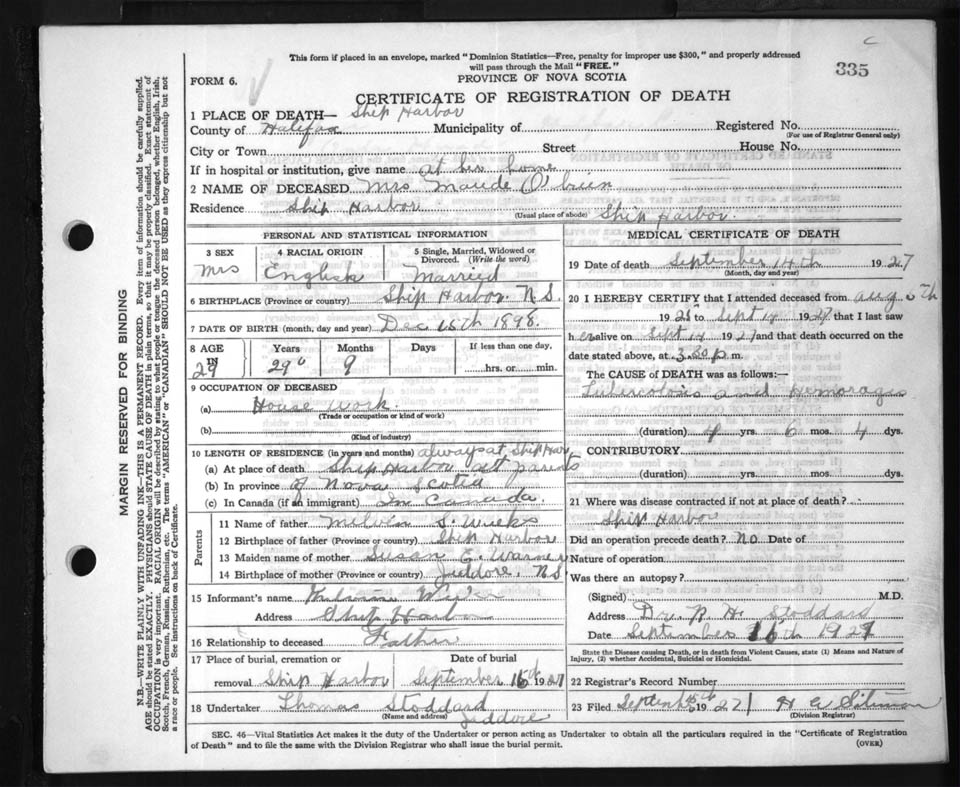 This form if placed in an envelope, marked "Dominion Statistics—Free, penalty for improper use $300," and properly addressed
will pass through the Mail "FREE."
335
FORM 6.
PROVINCE OF NOVA SCOTIA
CERTIFICATE OF REGISTRATION OF DEATH
1 PLACE OF DEATH— Ship Harbor
County of Halifax Municipality of Registered No.
(For use of Registrar General only)
City or Town Street House No.
If in hospital or institution, give name at her home
2 NAME OF DECEASED Mrs Maude O'brien
Residence Ship Harbor (Usual place of abode) Ship Harbor.
PERSONAL AND STATISTICAL INFORMATION
3 SEX 4 RACIAL ORIGIN 5 Single, Married, Widowed or Divorced. (Write the word)
Mrs English Married
6 BIRTHPLACE (Province or country) Ship Harbor. N.S.
7 DATE OF BIRTH (month, day and year) Dec 15th 1898.
8 AGE IN Years Months Days If less than one day,
29 29 9 hrs. or min.
9 OCCUPATION OF DECEASED
(a) House work
(Trade or occupation or kind of work)
(b)
(Kind of industry)
10 LENGTH OF RESIDENCE (in years and months) always at Ship Har
(a) At place of death Ship Harbor att parents
(b) In province of Nova Scotia
(c) In Canada (if an immigrant) In Canada.
Parents
11 Name of father S. Weeks
12 Birthplace of father (Province or country) Ship Harbor
13 Maiden name of mother Susan E.
14 Birthplace of mother (Province or country) Jeddore. N.S.
15 Informant's name
Address Ship Harbor
16 Relationship to deceased Father
17 Place of burial, cremation or removal Date of burial
Ship Harbor September 16th 1927
18 Undertaker Thomas Stoddard
(Name and address) Jeddore
MEDICAL CERTIFICATE OF DEATH
19 Date of death September 14th 1927
(Month, day and year)
20 I HEREBY CERTIFY that I attended deceased from aug 5th
192 to Sept 14 1927 that I last saw
h er alive on Sept 14 1927 and that death occurred on the
date stated above, at 3.30 p m.
The CAUSE of DEATH was as follows:—
Tuberculosis and Hemorages
(duration) 4 yrs. 6 mos. 4 dys.
CONTRIBUTORY
(duration) yrs. mos. dys.
21 Where was disease contracted if not at place of death?
Ship Harbor
Did an operation precede death? no Date of
Nature of operation
Was there an autopsy?
(Signed) M.D.
Address Dr. H. Stoddard
Date September 16th 1927
State the Disease causing Death, or in death from Violent Causes, state (1) Means and Nature of
Injury, (2) whether Accidental, Suicidal or Homicidal.
22 Registrar's Record Number
23 Filed September 1927 H
(Division Registrar)
SEC. 46—Vital Statistics Act makes it the duty of the Undertaker or person acting as Undertaker to obtain all the particulars required in the "Certificate of Registration
of Death" and to file the same with the Division Registrar who shall issue the burial permit. (OVER)
MARGIN RESERVED FOR BINDING
N.B.—WRITE PLAINLY WITH UNFADING INK—THIS IS A PERMANENT RECORD. Every item of information should be carefully supplied.
AGE should be stated EXACTLY. PHYSICIANS should STATE CAUSE OF DEATH in plain terms, so that it may be properly classified. Exact statement of
OCCUPATION is very important. RACIAL ORIGIN will be described by stating to what people or tongue the deceased person belonged, whether English, Irish,
Scotch, French, German, Russian, Ruthenian, etc. The terms "AMERICAN" or "CANADIAN" SHOULD NOT BE USED as they express citizenship but not
a race or people. See instructions on back of Certificate.